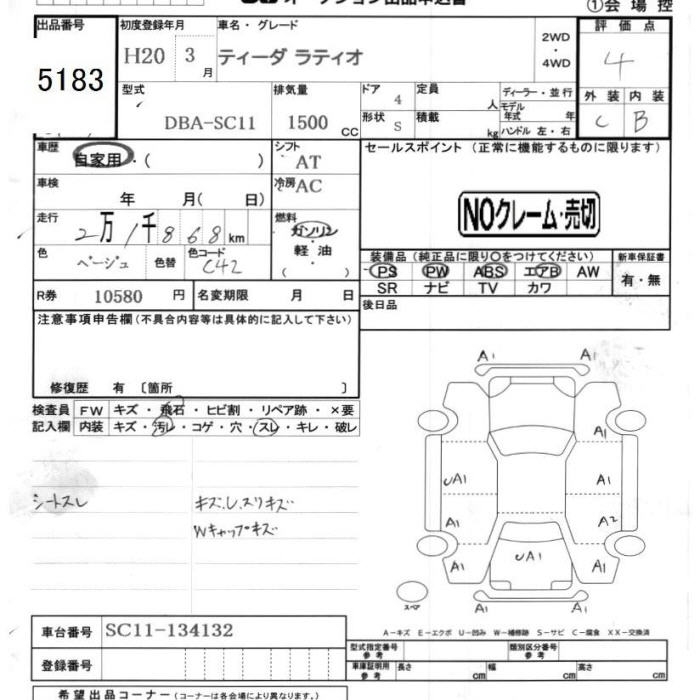 オークション出品申込書
①会場控
出品番号 初度登録年月 車名・グレード 2WD・4WD 評価点
5183 H20 3月 ティーダ ラティオ 4
型式 排気量 ドア 4 定員 人 ディーラー・並行 外装 内装
DBA-SC11 1500 CC 形状 S 積載 kg モデル年式 年 ハンドル 左・右 C B
車歴 自家用・( ) シフト AT セールスポイント (正常に機能するものに限ります)
車検 年 月( 日) 冷房 AC
NOクレーム・売切
走行 2万1千868km 燃料 ガソリン・軽油・( )
色 ベージュ 色替 色コード C42
装備品 (純正品に限り○をつけてください) 新車保証書
PS PW ABS エアB AW 有・無
SR ナビ TV カワ
R券 10580円 名変期限 月 日 後日品
注意事項申告欄(不具合内容等は具体的に記入して下さい)
修復歴 有 〔箇所 〕
検査員 FW キズ・飛石・ヒビ割・リペア跡・×要
記入欄 内装 キズ・汚レ・コゲ・穴・スレ・キレ・破レ
A1 A1
A1
UA1 A1
A1 A2
A1 UA1 A1
A1 A1
シートスレ キズ,し,スリキズ
Wキャップキズ
スペア
A-キズ E-エクボ U-凹み W-補修跡 S-サビ C-腐食 XX-交換済
車台番号 SC11-134132
型式指定番号 参考 類別区分番号 参考
登録番号 車庫証明用 参考 長さ cm 幅 cm 高さ cm
希望出品コーナー (コーナーは各会場により異なります。)